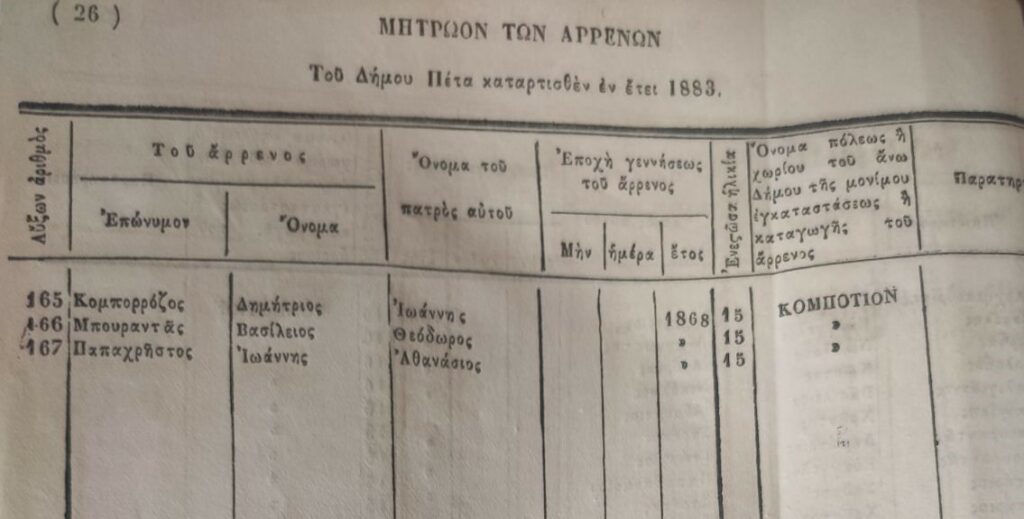 ( 26 )
ΜΗΤΡΩΟΝ ΤΩΝ ΑΡΡΕΝΩΝ
Τοῦ Δήμου Πέτα καταρτισθὲν ἐν ἔτει 1883.
Αὔξων ἀριθμὸς
Τοῦ ἄρρενος
Ἐπώνυμον
Ὄνομα
Ὄνομα τοῦ
πατρὸς αὐτοῦ
Ἐποχὴ γεννήσεως
τοῦ ἄρρενος
Μὴν ἡμέρα ἔτος
ἡλικία
Ὄνομα πόλεως ἢ
χωρίου τοῦ ἄνω
Δήμου τῆς μονίμου
ἐγκαταστάσεως ἢ
καταγωγῆς τοῦ
ἄρρενος
Παρατηρ
165 Κομπορρόζος Δημήτριος Ἰωάννης 1868 15 ΚΟΜΠΟΤΙΟΝ
166 Μπουραντᾶς Βασίλειος Θεόδωρος » 15 »
167 Παπαχρῆστος Ἰωάννης Ἀθανάσιος » 15 »